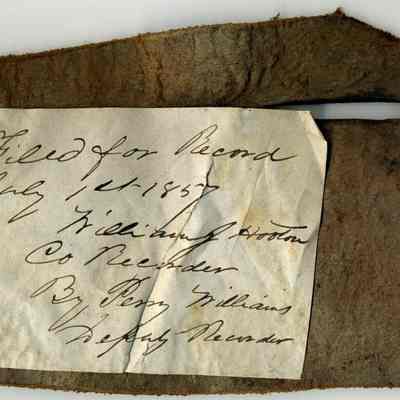 Filed for Record
July 1st 1857
William J Hooton
Co Recorder
By Perry Williams
Deputy Recorder